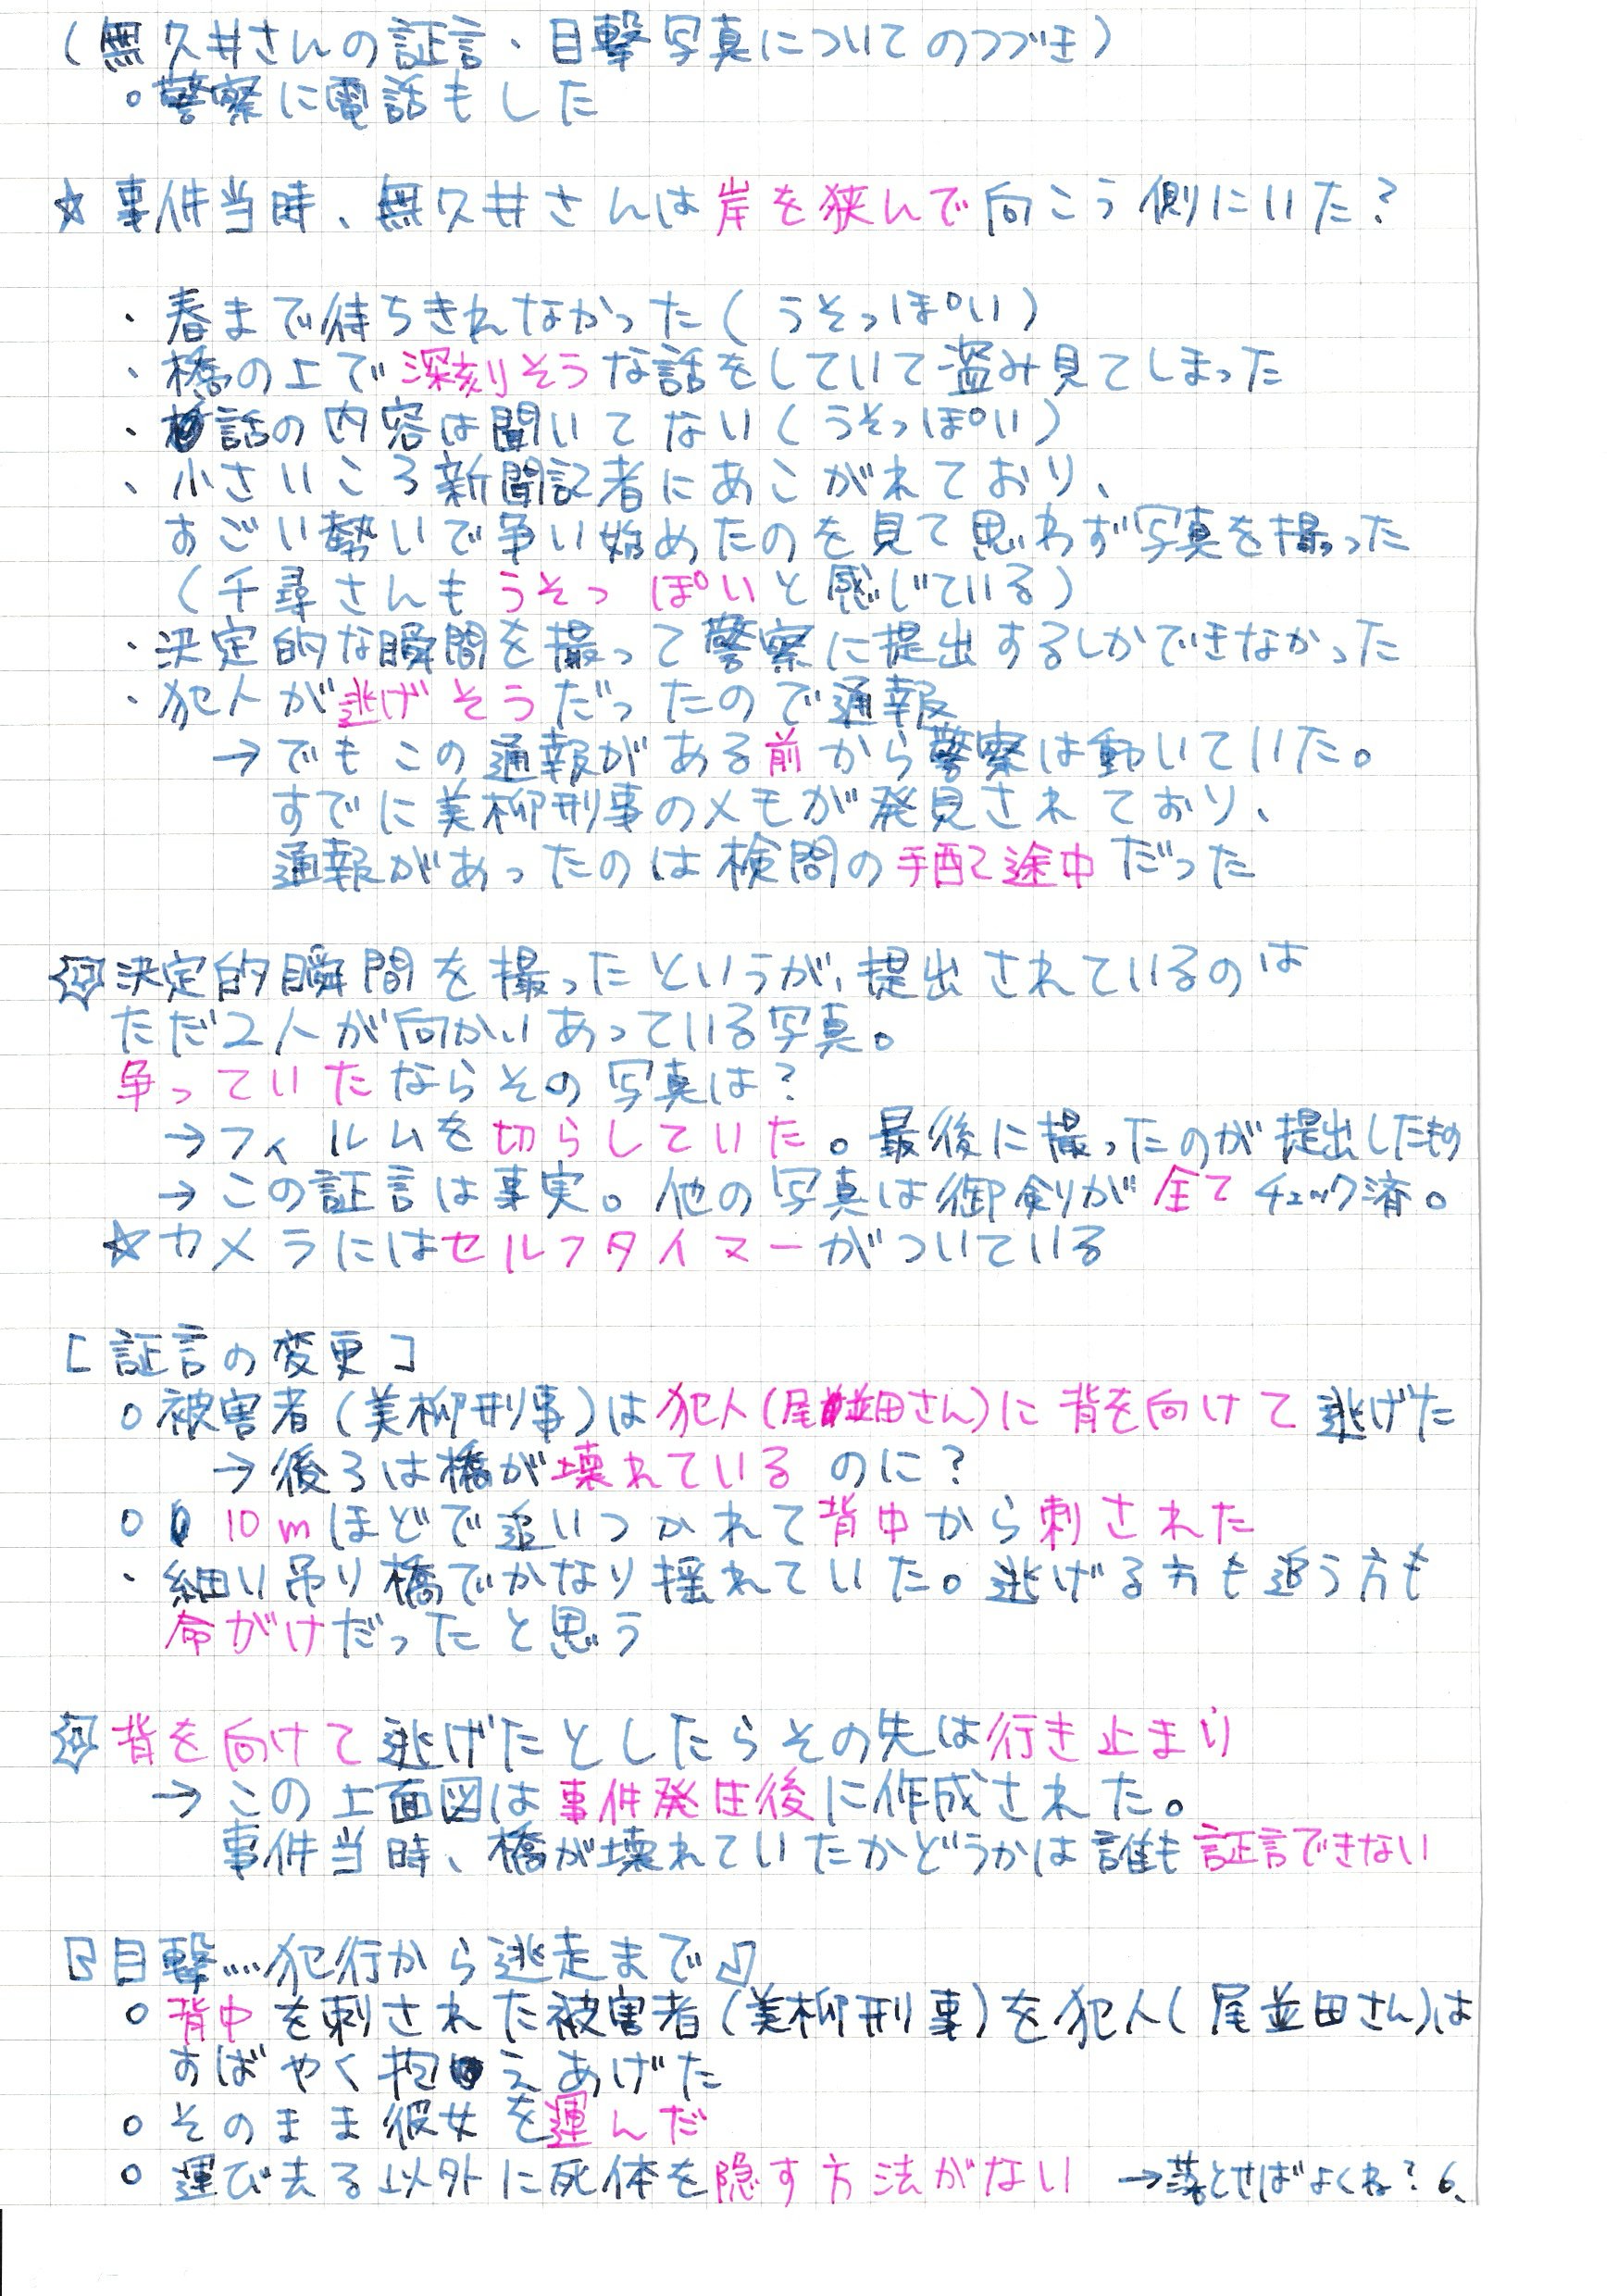 (無久井さんの証言・目撃写真についてのつづき)
○警察に電話もした
☆事件当時、無久井さんは岸を狭んで向こう側にいた?
・春まで待ちきれなかった(うそっぽい)
・橋の上で深刻そうな話をしていて盗み見てしまった
・話の内容は聞いてない(うそっぽい)
・小さいころ新聞記者にあこがれており、
すごい勢いで争い始めたのを見て思わず写真を撮った
(千尋さんもうそっぽいと感じている)
・決定的な瞬間を撮って警察に提出するしかできなかった
・犯人が逃げそうだったので通報
→でもこの通報がある前から警察は動いていた。
すでに美柳刑事のメモが発見されており、
通報があったのは検問の手配途中だった
☆決定的瞬間を撮ったというが、提出されているのは
ただ2人が向かいあっている写真。
争っていたならその写真は?
→フィルムを切らしていた。最後に撮ったのが提出したもの
→この証言は事実。他の写真は御剣が全てチェック済。
☆カメラにはセルフタイマーがついている
[証言の変更]
○被害者(美柳刑事)は犯人(尾並田さん)に背を向けて逃げた
→後ろは橋が壊れているのに?
○10mほどで追いつかれて背中から刺された
・細い吊り橋でかなり揺れていた。逃げる方も追う方も
命がけだったと思う
☆背を向けて逃げたとしたらその先は行き止まり
→この上面図は事件発生後に作成された。
事件当時、橋が壊れていたかどうかは誰も証言できない
『目撃……犯行から逃走まで』
○背中を刺された被害者(美柳刑事)を犯人(尾並田さん)は
すばやく抱えあげた
○そのまま彼女を運んだ
○運び去る以外に死体を隠す方法がない →落とせばよくね?6、